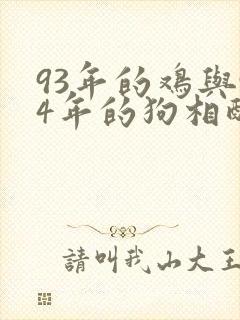 93年的鸡與
4年的狗相
請叫我山大王